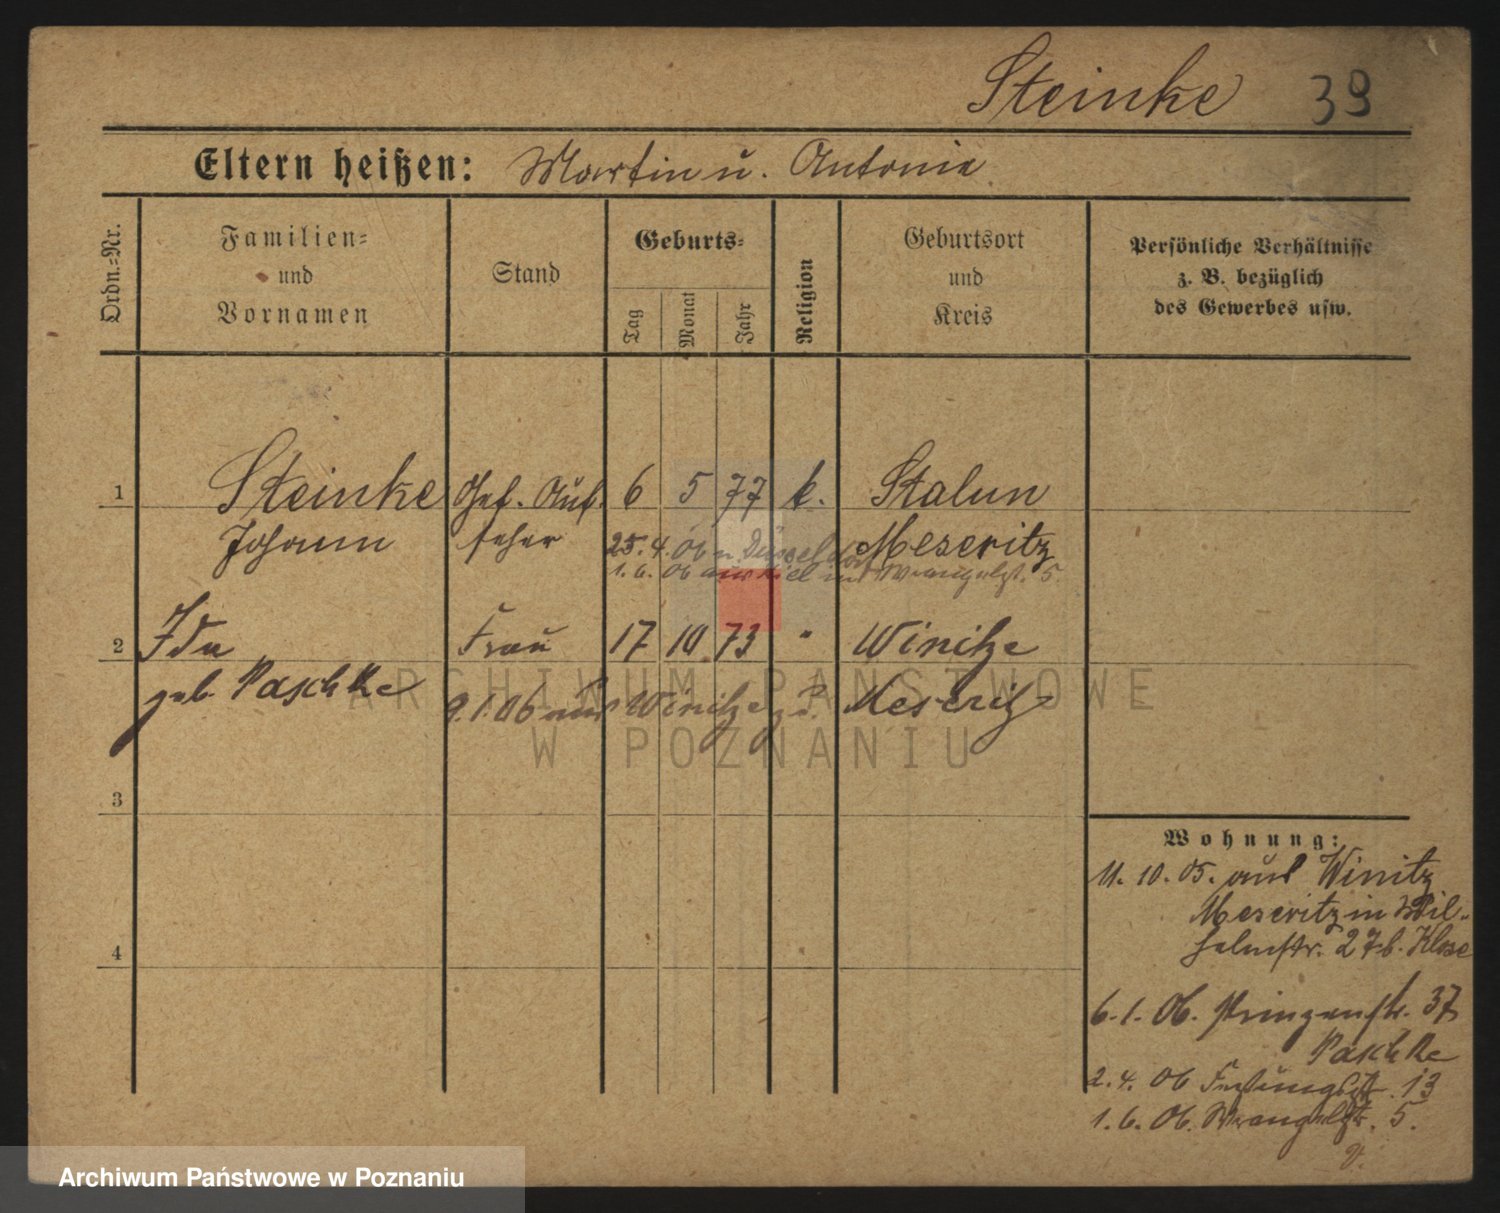 Steinke 39
Eltern heißen: Martin u. Antonie
Ordn.=Nr.
Familien=
und
Vornamen
Stand
Geburts=
Tag
Monat
Jahr
Religion
Geburtsort
und
Kreis
Persönliche Verhältnisse
z. B. bezüglich
des Gewerbes usw.
1 Steinke Gef. Auf. 6 5 77 k. Stalun
Johann seher Meseritz
25. 4. 06 n. Düsseldorf
1. 6. 06 aus Kiel in Wrangelst. 5.
2 Ida Frau 17 10 73 " Winitze
geb. Paschke Meseritz
9. 1. 06 aus Winitze
3
4
Wohnung:
11. 10. 05. aus Winitz
Meseritz in Wil-
helmstr. 27 b. Klose
6. 1. 06. Prinzenstr. 37
Paschke
2. 4. 06 13
1. 6. 06. Wrangelstr. 5.
ARCHIWUM PAŃSTWOWE
W POZNANIU
Archiwum Państwowe w Poznaniu